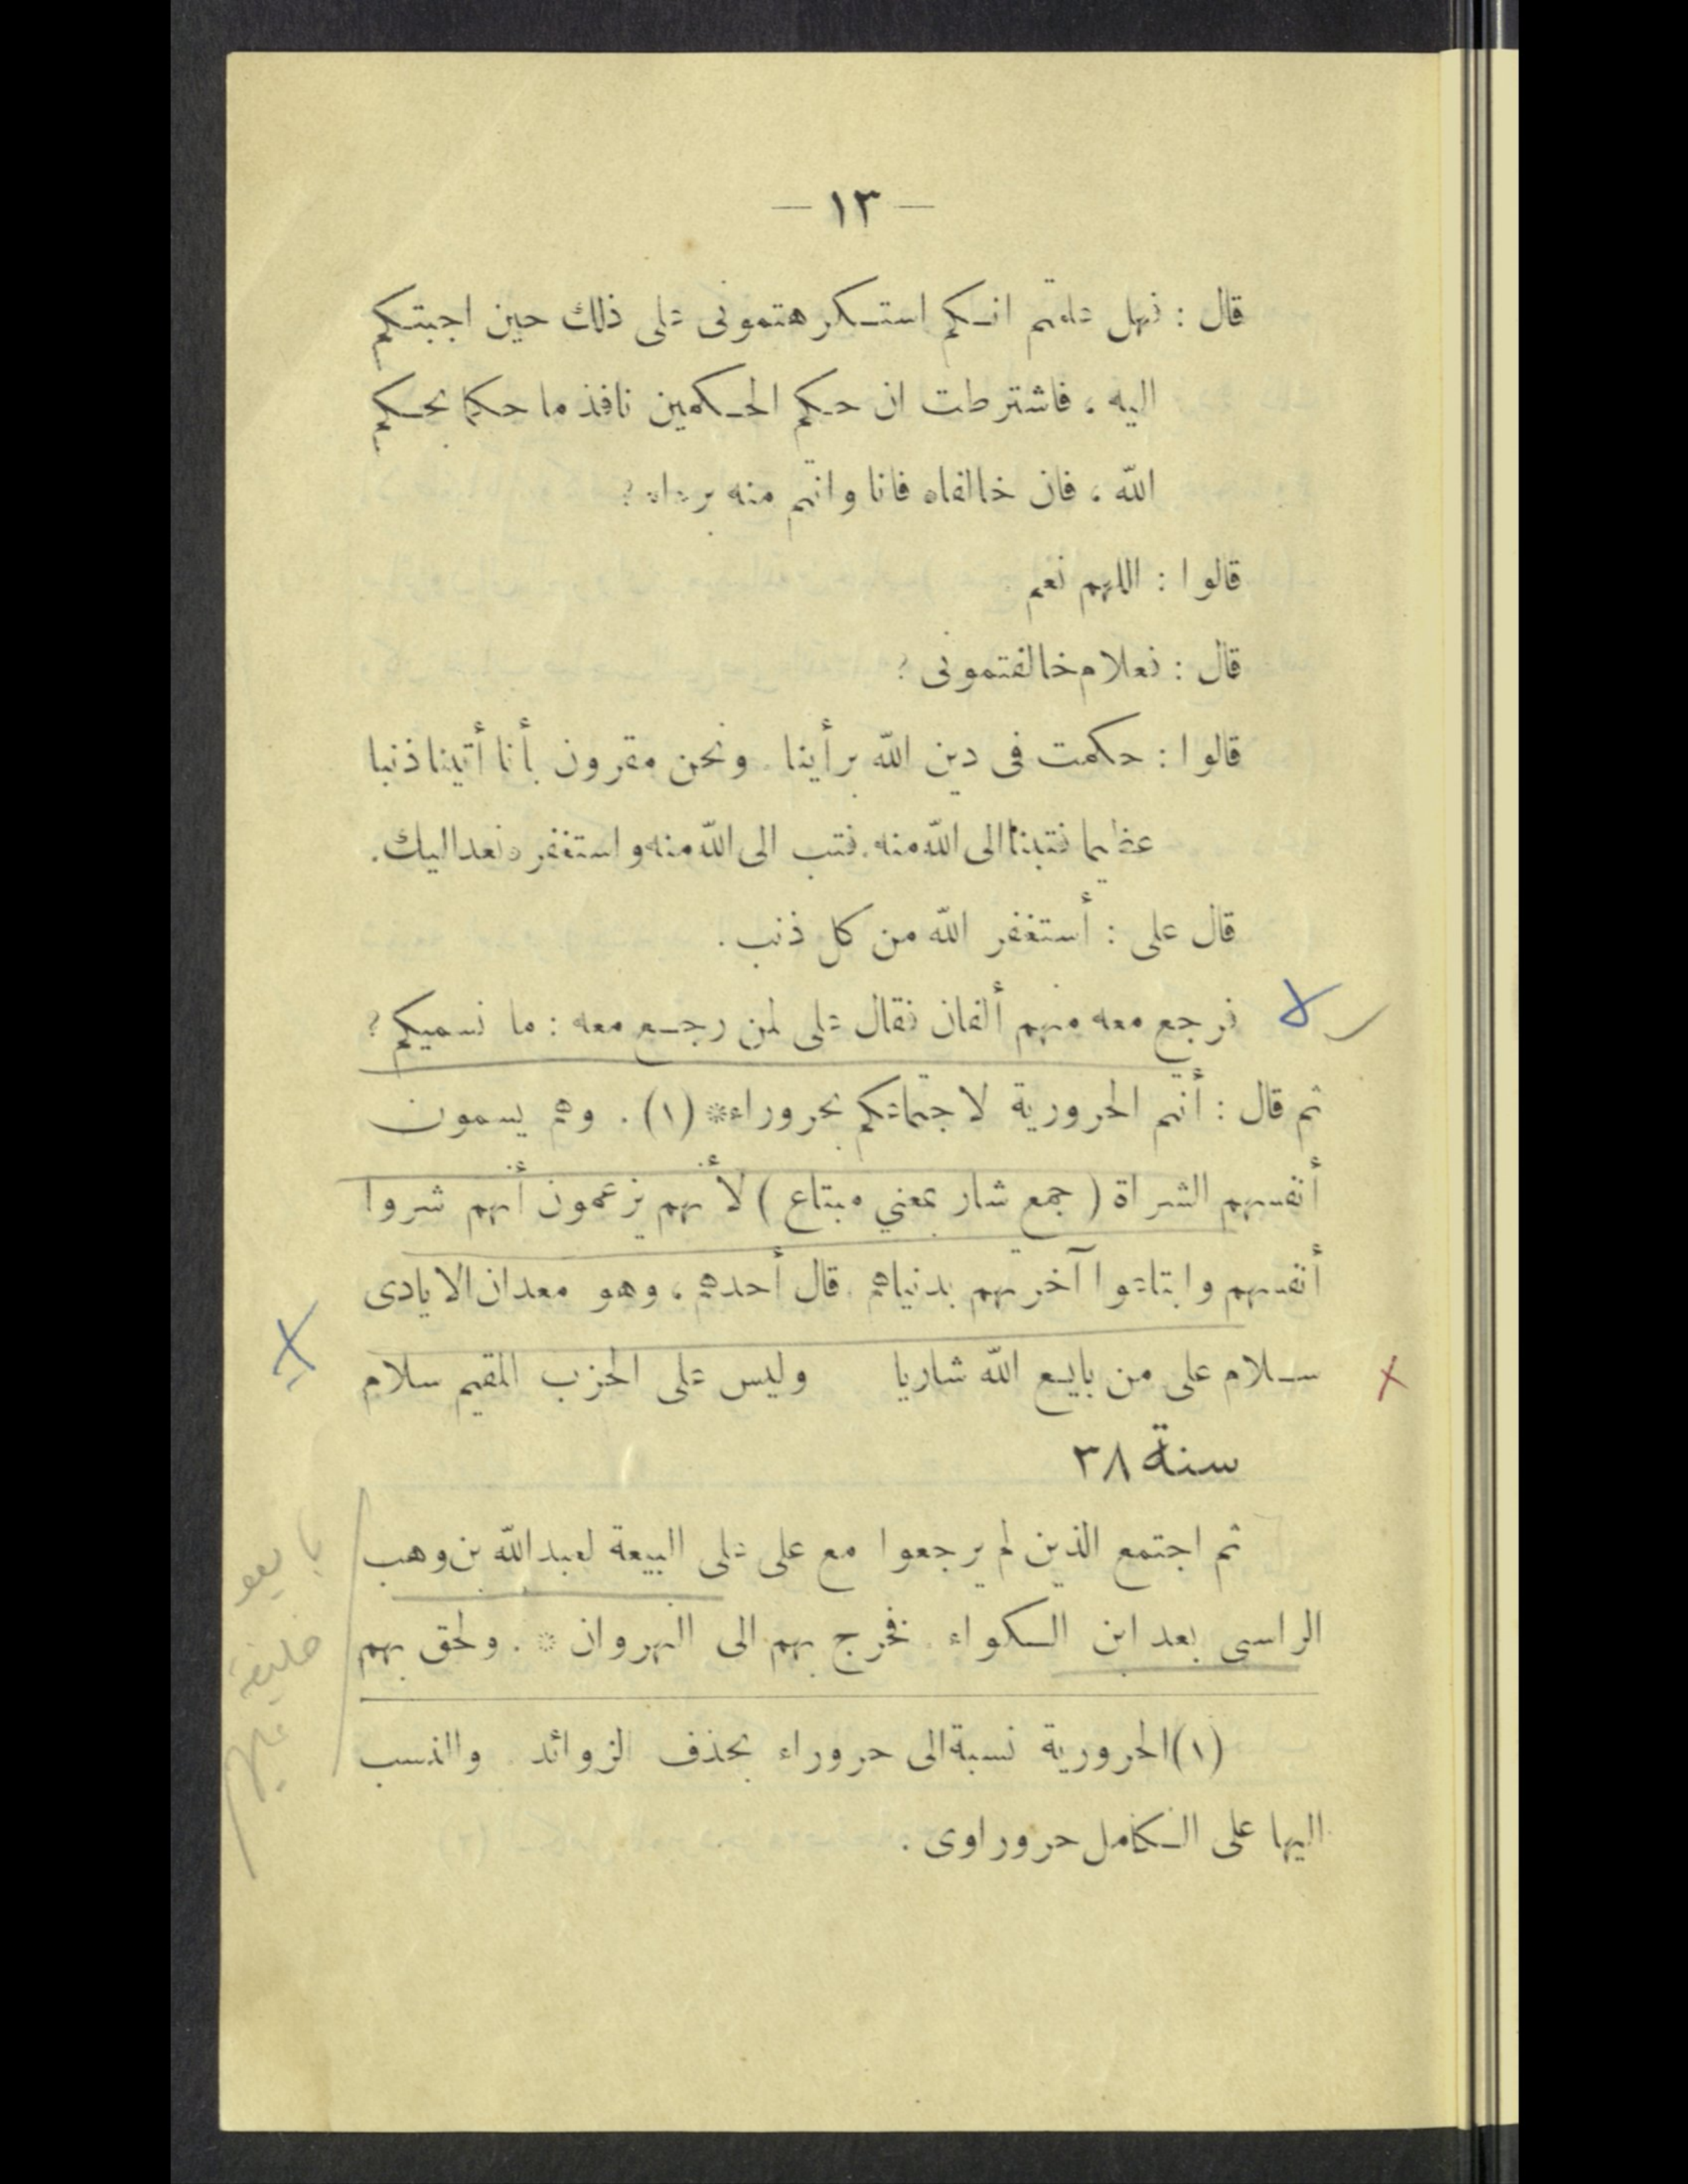 — ١٣ —
قال : فهل علمتم انكم استكرهتموني على ذلك حين اجبتكم
اليه ، فاشترطت ان حكم الحكمين نافذ ما حكما بحكم
الله ، فان خالفاه فانا وانتم منه برءاء ؟
قالوا : اللهم نعم
قال : فعلام خالفتموني ؟
قالوا : حكمت في دين الله برأينا . ونحن مقرون بأنا أتينا ذنبا
عظيما فتبنا الى الله منه . فتب الى الله منه واستغفر نعد اليك .
قال على : أستغفر الله من كل ذنب .
فرجع معه منهم ألفان فقال على لمن رجع معه : ما نسميكم ؟
ثم قال : أنتم الحرورية لاجتماعكم بحروراء* (١) . وهم يسمون
أنفسهم الشراة ( جمع شار بمعني مبتاع ) لأنهم يزعمون أنهم شروا
أنفسهم وابتاعوا آخرتهم بدنياهم . قال أحدهم ، وهو معدان الايادى
سلام على من بايع الله شاريا وليس على الحزب المقيم سلام
سنة ٣٨
ثم اجتمع الذين لم يرجعوا مع على على البيعة لعبد الله بن وهب
الراسبى بعد ابن الكواء . فخرج بهم الى النهروان * . ولحق بهم
(١) الحرورية نسبة الى حروراء بحذف الزوائد . والنسب
اليها على الكامل حروراوى .
بايعو
خليفة
عليهم